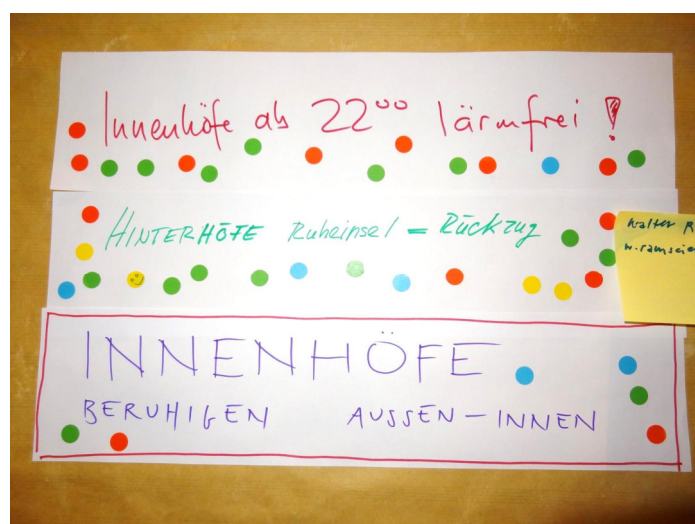 Innenhöfe ab 22⁰⁰ lärmfrei !
HINTERHÖFE Ruheinsel = Rückzug
Walter R
INNENHÖFE
BERUHIGEN AUSSEN-INNEN